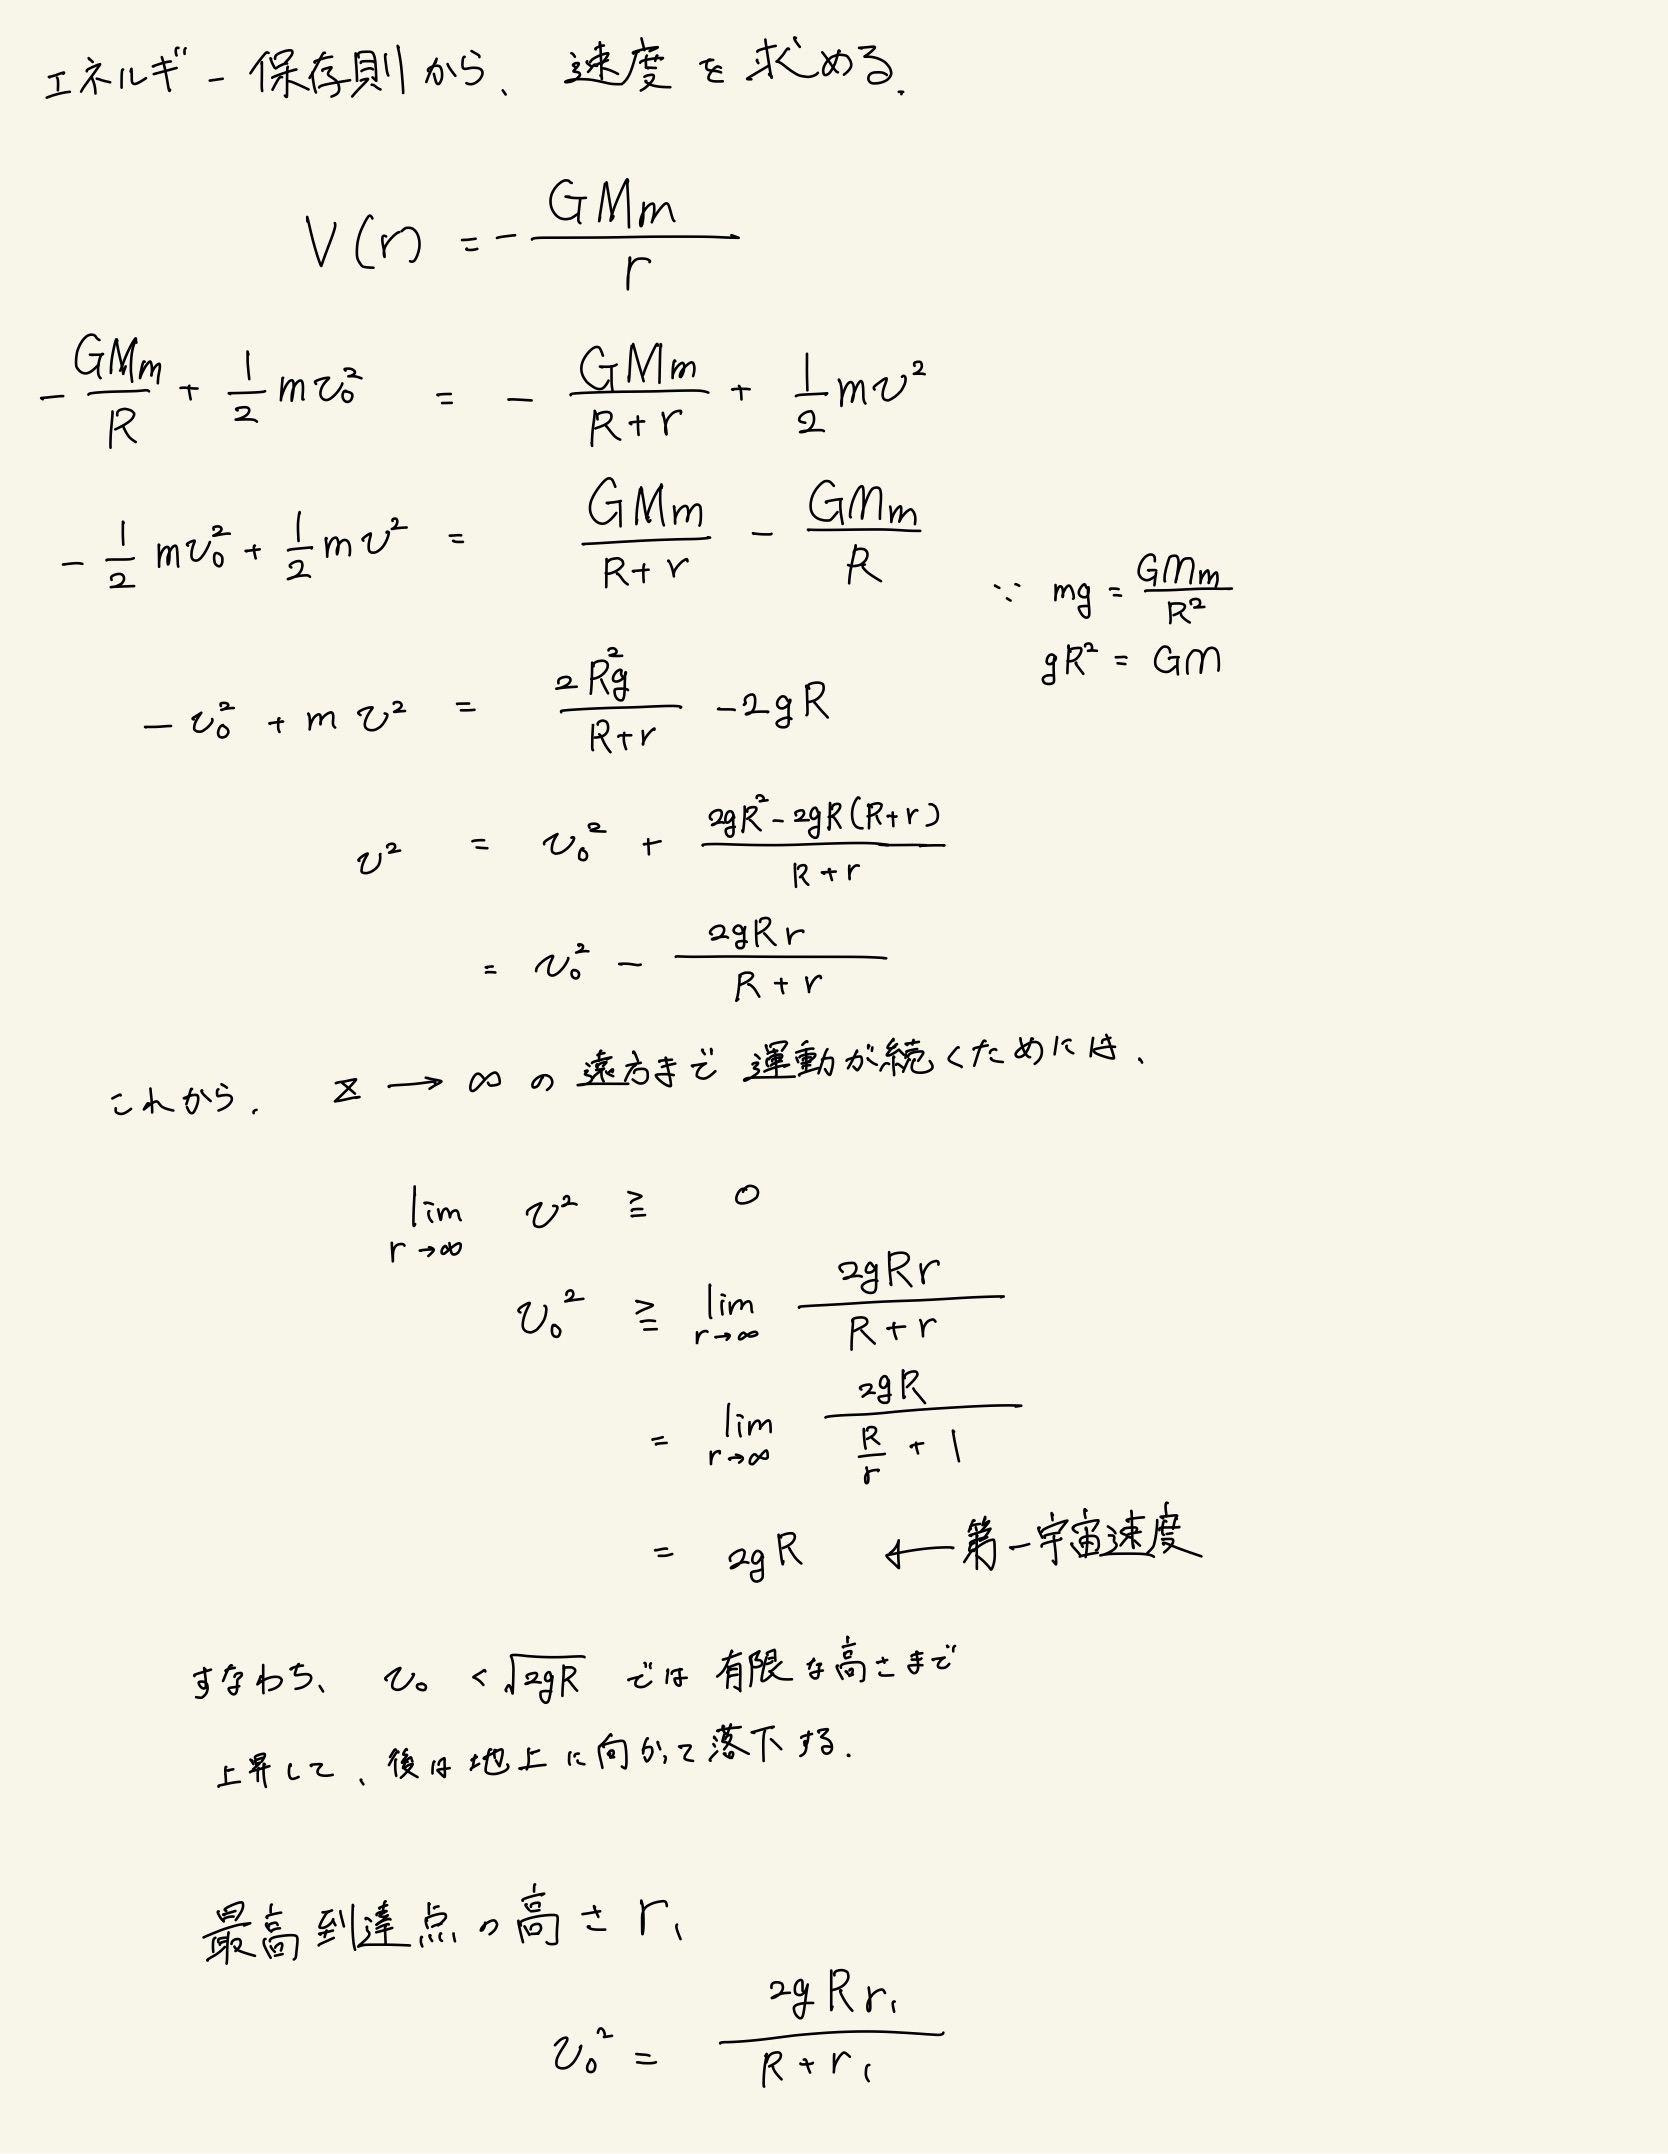 エネルギー保存則から、速度を求める.
V(r) = - GMm / r
- GMm / R + 1/2 mv₀² = - GMm / (R+r) + 1/2 mv²
- 1/2 mv₀² + 1/2 mv² = GMm / (R+r) - GMm / R
∵ mg = GMm / R²
gR² = GM
- v₀² + m v² = 2R²g / (R+r) - 2gR
v² = v₀² + (2gR² - 2gR(R+r)) / (R+r)
= v₀² - 2gRr / (R+r)
これから. z → ∞ の遠方まで運動が続くためには、
lim r→∞ v² ≧ 0
v₀² ≧ lim r→∞ 2gRr / (R+r)
= lim r→∞ 2gR / (R/r + 1)
= 2gR ← 第一宇宙速度
すなわち、 v₀ < √2gR では有限な高さまで
上昇して、後は地上に向かって落下する.
最高到達点の高さ r₁
v₀² = 2gRr₁ / (R+r₁)